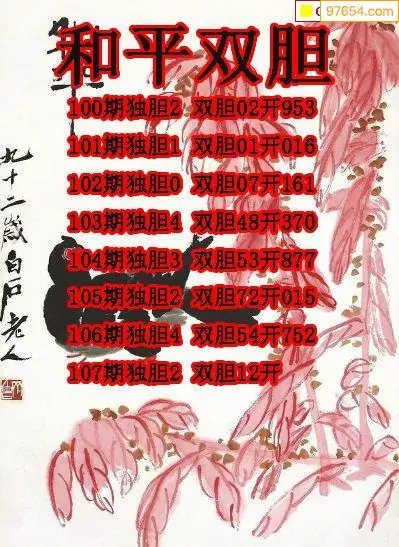 97654.com
和平双胆
100期独胆2 双胆02开953
101期独胆1 双胆01开016
102期独胆0 双胆07开161
103期独胆4 双胆48开370
104期独胆3 双胆53开877
105期独胆2 双胆72开015
106期独胆4 双胆54开752
107期独胆2 双胆12开
九十二岁白石老人